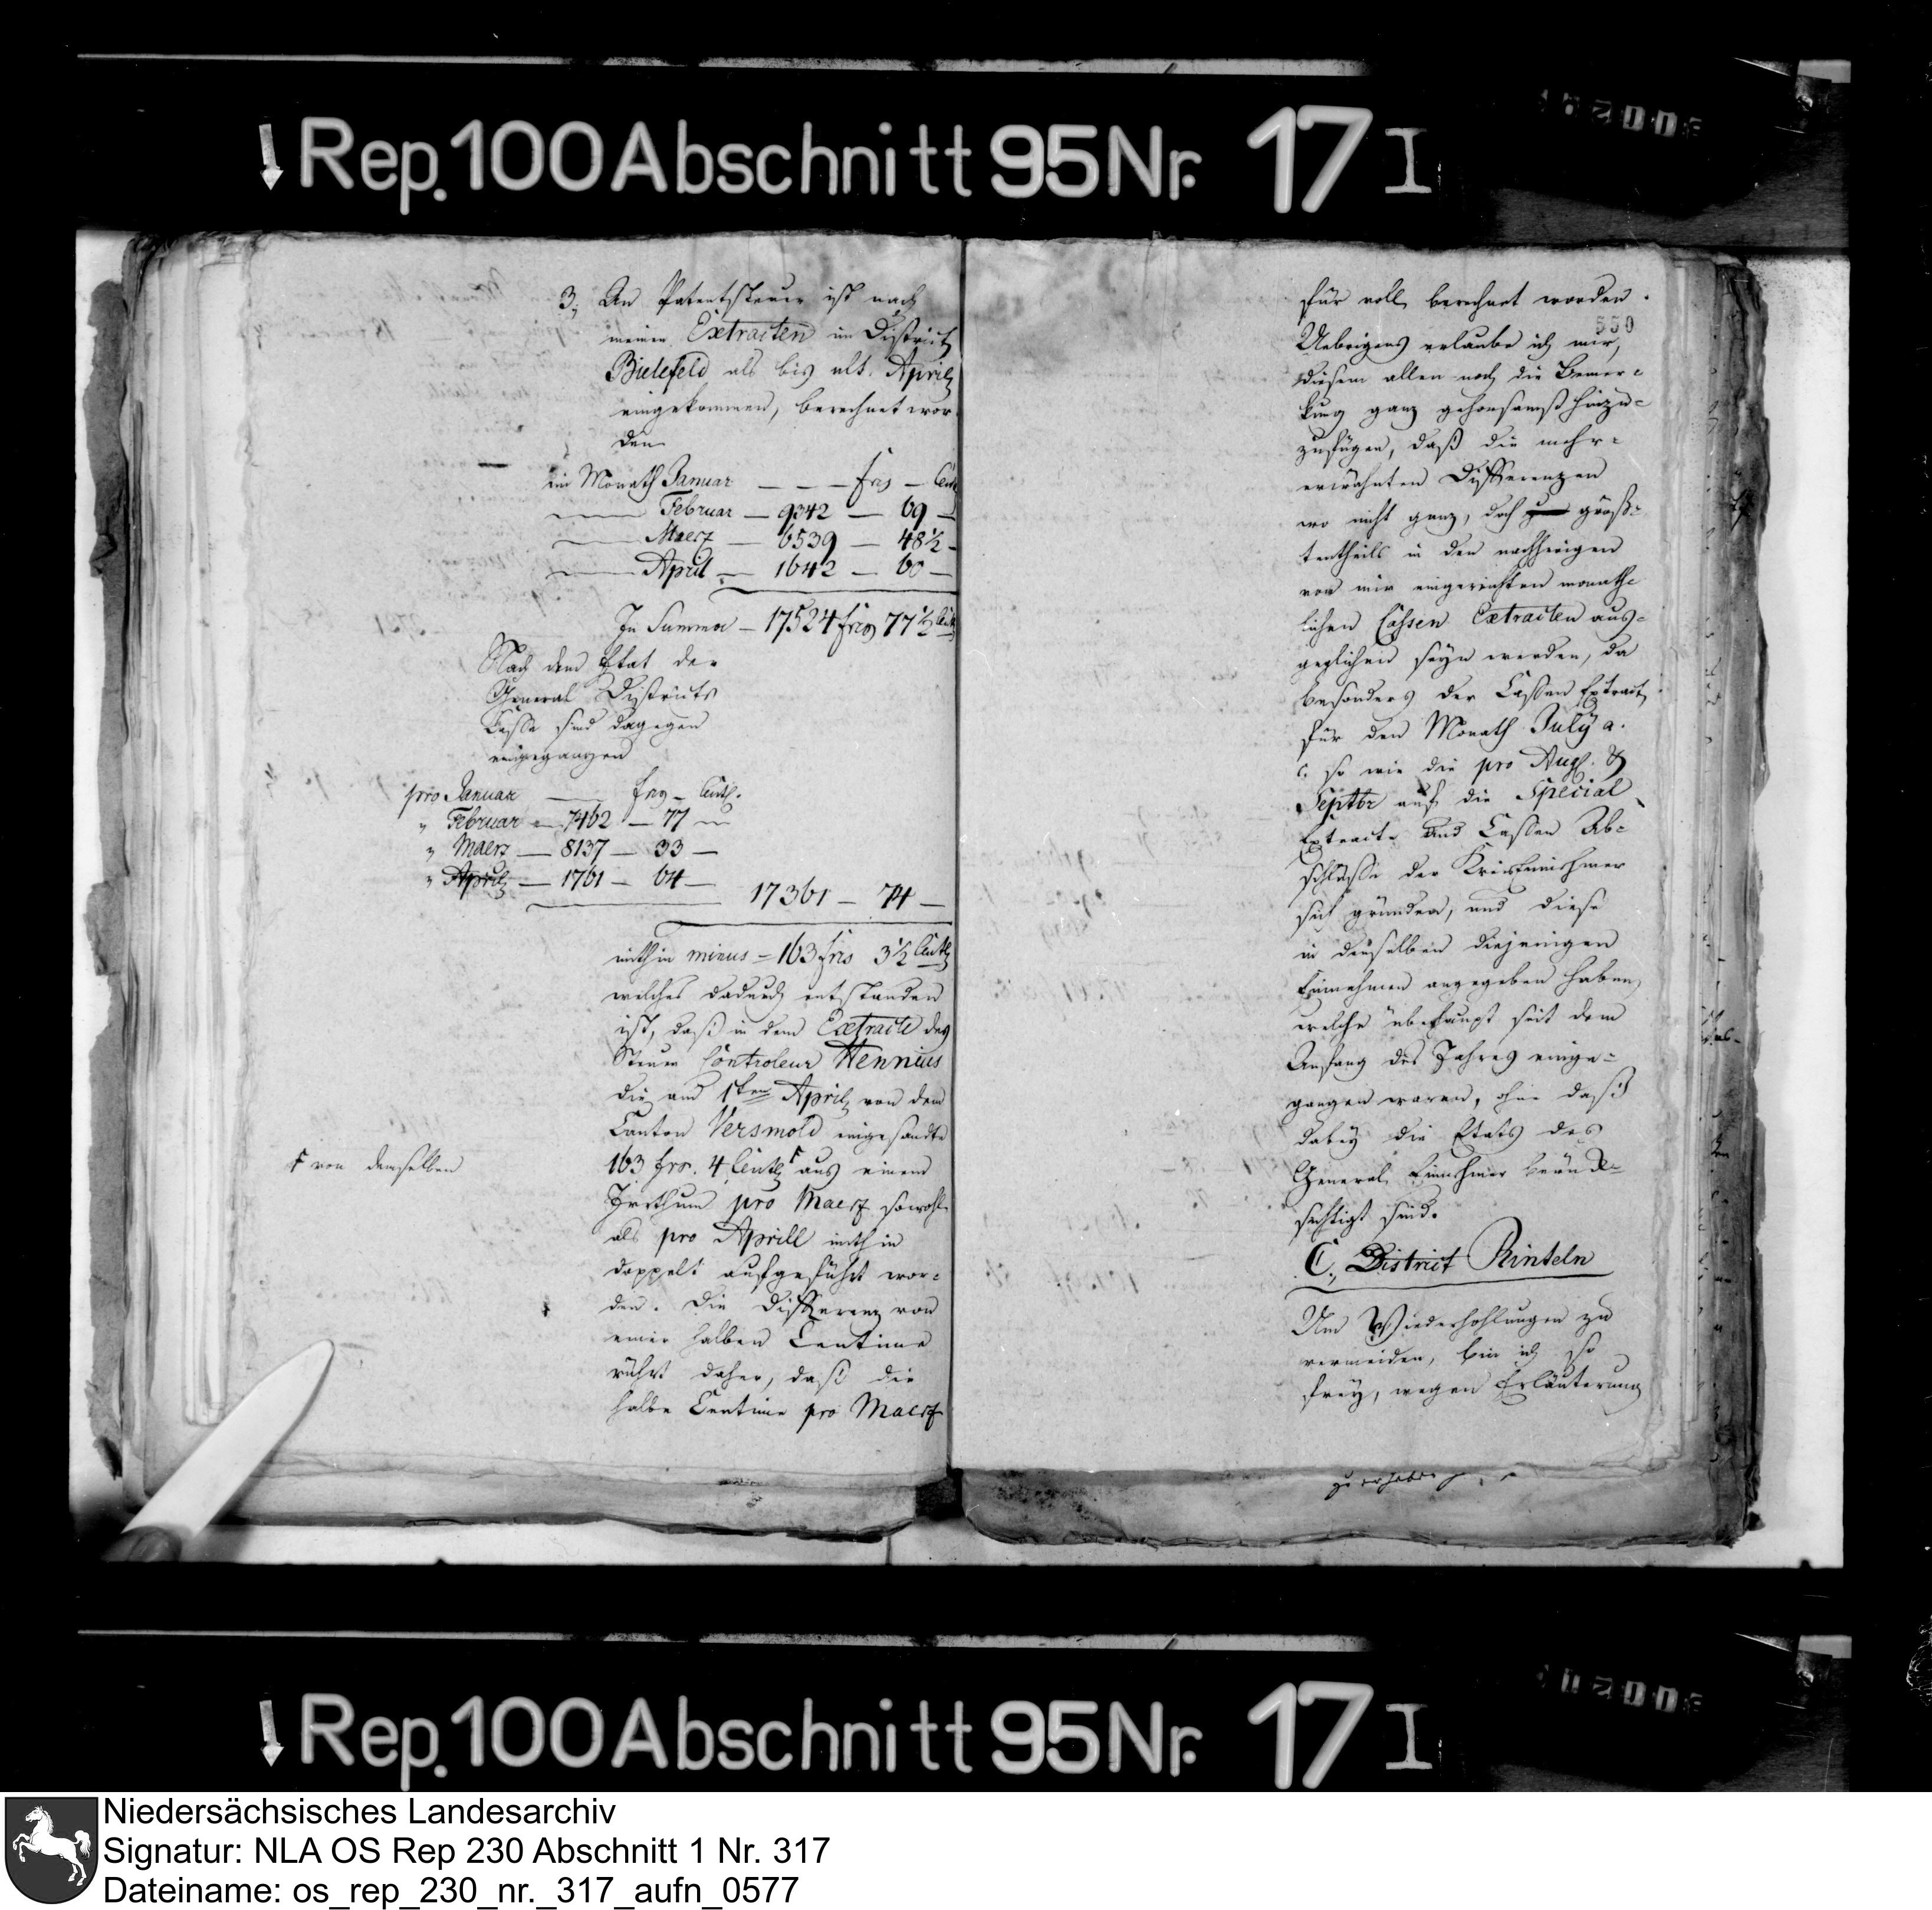 Rep. 100 Abschnitt 95 Nr. 17 I
3, An Patentsteuer ist nach
meinen Extracten im District
Bielefeld als bis ult. April
eingekommen, berechnet wor-
den
im Monath Januar — — — frs — Cent
Februar — 9342 — 69 —
Maerz — 6539 — 48 ½ —
April — 1642 — 60 —
In Summa — 17524 frs 77 ½ Cent
Nach dem Etat der
General Districts
Casse sind dagegen
eingegangen
pro Januar — frs — Cent.
" Februar — 7462 — 77 —
" Maerz — 8137 — 33 —
" April — 1761 — 64 —
17361 — 74 —
mithin minus — 163 frs 3 ½ Cent
welches dadurch entstanden
ist, daß in dem Extracte des
Steuer Controleur Hennius
die am 1ten April von dem
Canton Versmold eingesandte
163 frs. 4 Cent aus einem
von demselben
Irrthum pro Maerz sowohl
als pro Aprill mithin
doppelt aufgeführt wor-
den. Die Differenz von
einer halben Centime
rührt daher, daß die
halbe Centime pro Maerz
für voll berechnet worden.
550
Uebrigens erlaube ich mir,
diesem allen noch die Bemer-
kung ganz gehorsamst hinzu-
zufügen, daß die mehr-
erwähnten Differenzen
wo nicht ganz, doch größ-
tentheils in den nachherigen
von mir eingereichten monath-
lichen Cassen Extracten aus-
geglichen seyn werden, da
besonders der Cassen Extract
für den Monath July a.
c. so wie die pro Aug. &
Septbr auf die Special
Extracte und Cassen Ab-
schlüsse der Kreiseinnehmer
sich gründen, und diese
in denselben diejenigen
Einnahmen angegeben haben,
welche überhaupt seit dem
Anfang des Jahres einge-
gangen waren, ohne daß
dabey die Etats des
General Einnehmer berück-
sichtigt sind.
C., District Rinteln
Um Wiederhohlungen zu
vermeiden, bin ich so
frey, wegen Erläuterung
Rep. 100 Abschnitt 95 Nr. 17 I
Niedersächsisches Landesarchiv
Signatur: NLA OS Rep 230 Abschnitt 1 Nr. 317
Dateiname: os_rep_230_nr._317_aufn_0577